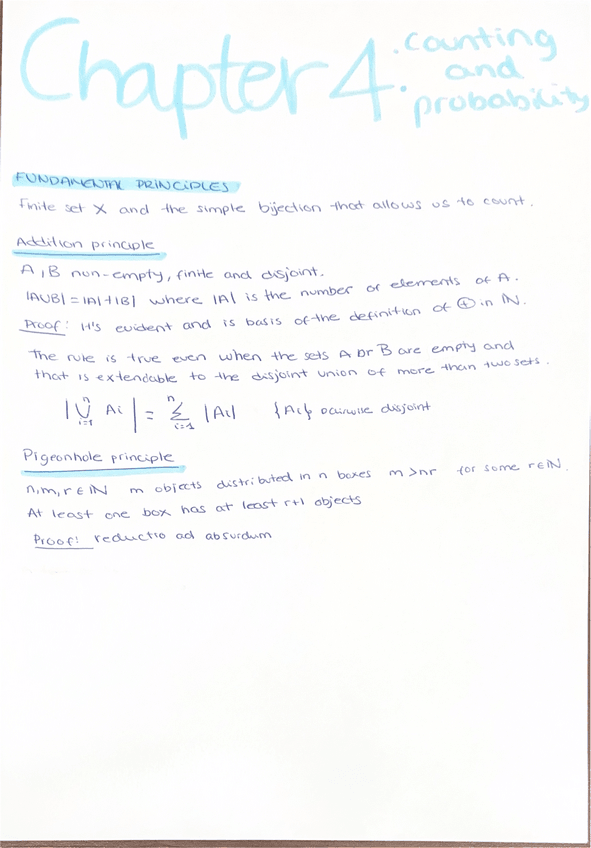 Chapter 4.
. counting
and
probability
FUNDAMENTAL PRINCIPLES
Finite set X and the simple bijection that allows us to count.
Addition principle
A, B non-empty, finite and disjoint.
|A∪B| = |A|+|B| where |A| is the number of elements of A.
Proof: It's evident and is basis of the definition of ⊕ in ℕ.
The rule is true even when the sets A or B are empty and
that is extendable to the disjoint union of more than two sets.
|⋃ⁿᵢ₌₁ Ai| = ∑ⁿᵢ₌₁ |Ai| {Ai} pairwise disjoint
Pigeonhole principle
n,m,r ∈ ℕ m objects distributed in n boxes m > nr for some r∈ℕ.
At least one box has at least r+1 objects
Proof: reductio ad absurdum